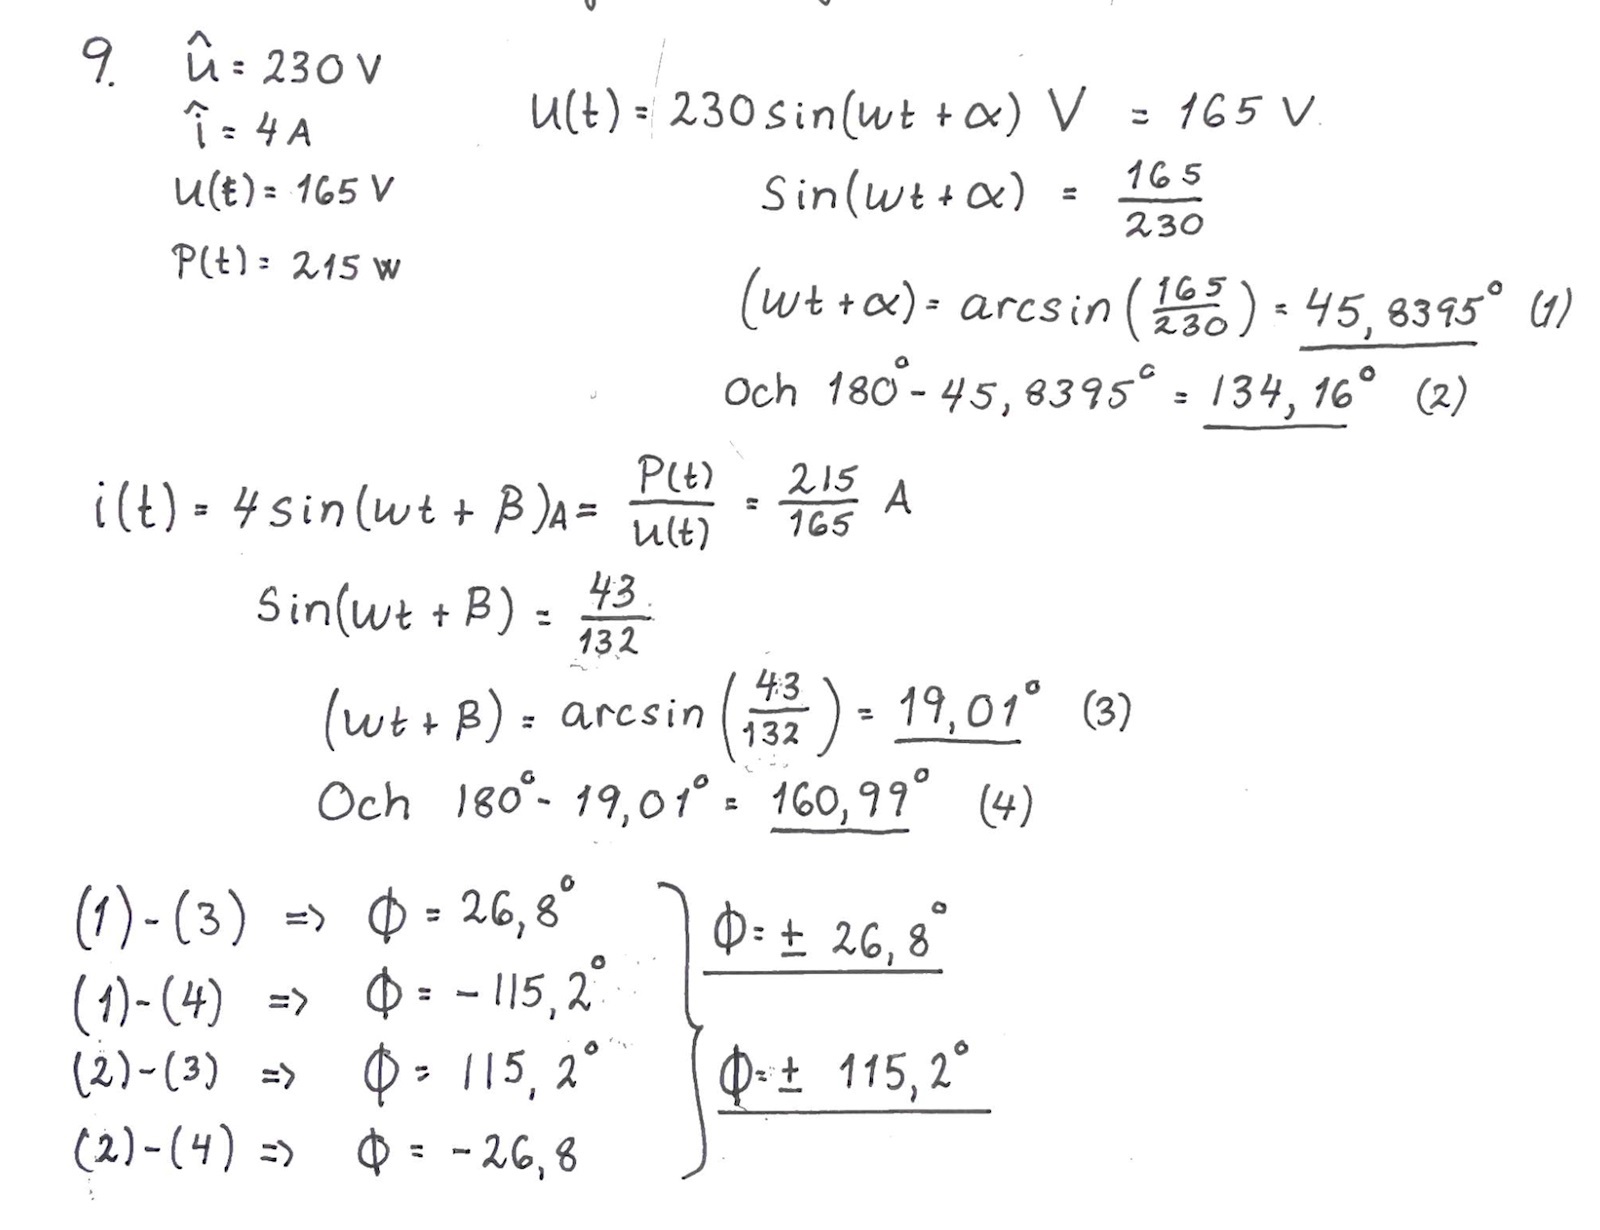 9. û = 230 V
î = 4 A
u(t) = 165 V
P(t) = 215 W
u(t) = 230 sin(wt + α) V = 165 V.
Sin(wt + α) = 165/230
(wt + α) = arcsin(165/230) = 45,8395° (1)
Och 180° - 45,8395° = 134,16° (2)
i(t) = 4 sin(wt + β)A = P(t)/u(t) = 215/165 A
Sin(wt + β) = 43/132
(wt + β) = arcsin(43/132) = 19,01° (3)
Och 180° - 19,01° = 160,99° (4)
(1)-(3) => Φ = 26,8°
(1)-(4) => Φ = -115,2°
(2)-(3) => Φ = 115,2°
(2)-(4) => Φ = -26,8
Φ = ± 26,8°
Φ = ± 115,2°